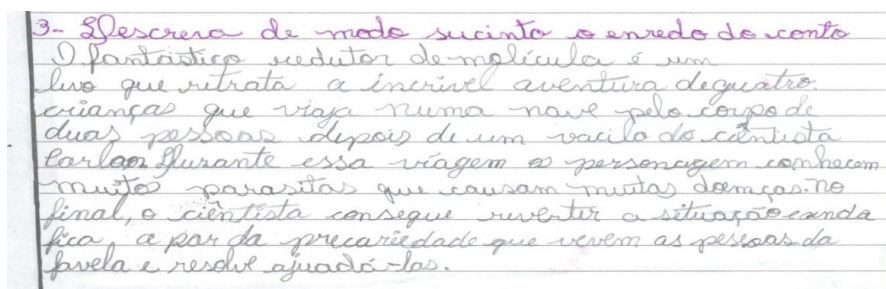 3- Descreva de modo sucinto o enredo do conto
O fantástico redutor de molícula é um
livo que retrata a incrível aventura de quatro
crianças que viaja numa nave pelo corpo de
duas pessoas depois de um vacilo do cientista
Carlaon Durante essa viagem os personagem conhecem
muitos parasitas que causam muitas doenças. no
final, o ciêntista consegue reverter a situação e ainda
fica a par da precariedade que vivem as pessoas da
favela e resolve ajuadá-las.